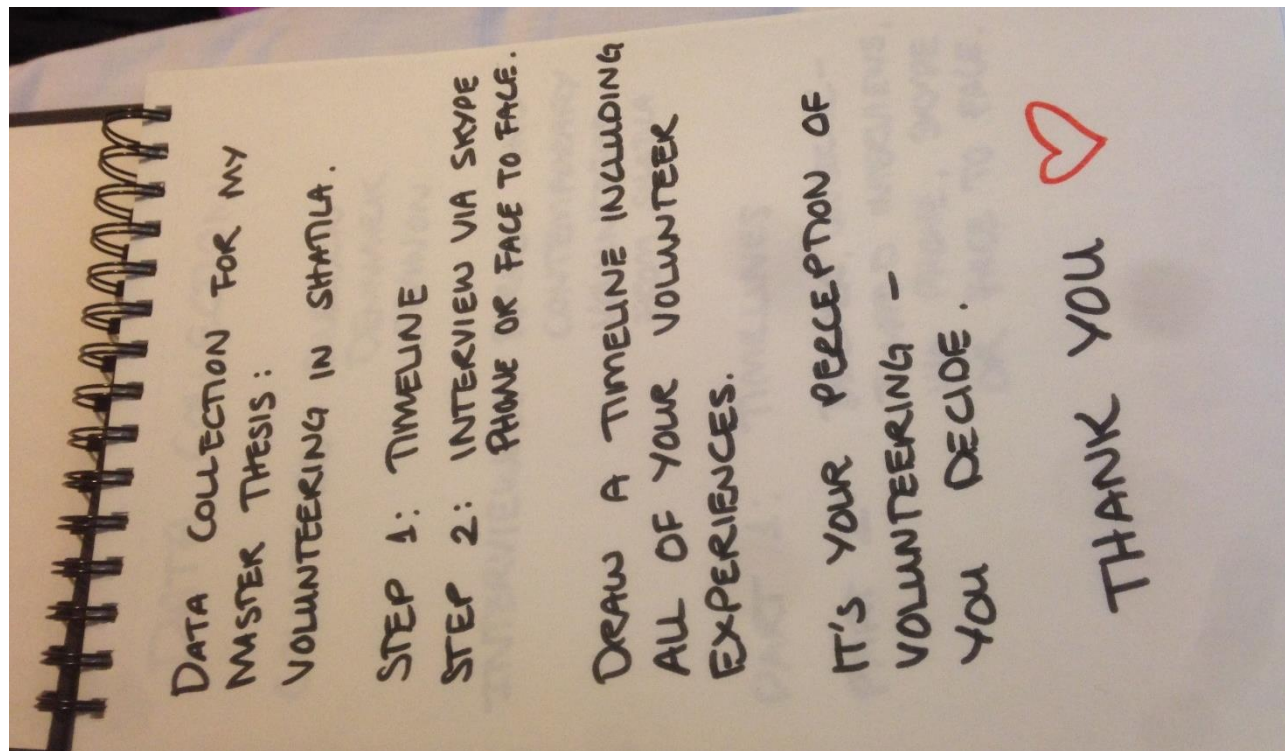 DATA COLLECTION FOR MY
MASTER THESIS:
VOLUNTEERING IN SHATILA.
STEP 1: TIMELINE
STEP 2: INTERVIEW VIA SKYPE
PHONE OR FACE TO FACE.
DRAW A TIMELINE INCLUDING
ALL OF YOUR VOLUNTEER
EXPERIENCES.
IT'S YOUR PERCEPTION OF
VOLUNTEERING -
YOU DECIDE.
THANK YOU